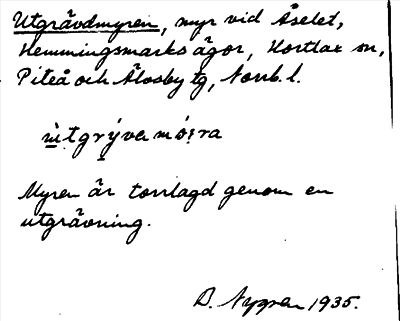 Utgrävdmyren, myr vid Åselet,
Hemmingsmarks ägor, Hortlax sn,
Piteå och Älvsby tg, Norrb. l.
ùtgrýva mó:ra
Myren är torrlagd genom en
utgrävning.
D. Nygren 1935.